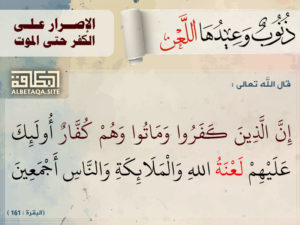 ذُنُوبٌ وَعِيدُهَا اللَّعْن
الإصرار على
الكفر حتى الموت
البطاقة
ALBETAQA.SITE
قال الله تعالى :
إِنَّ الَّذِينَ كَفَرُوا وَمَاتُوا وَهُمْ كُفَّارٌ أُولَئِكَ
عَلَيْهِمْ لَعْنَةُ اللهِ وَالْمَلَائِكَةِ وَالنَّاسِ أَجْمَعِينَ
(البقرة : 161)